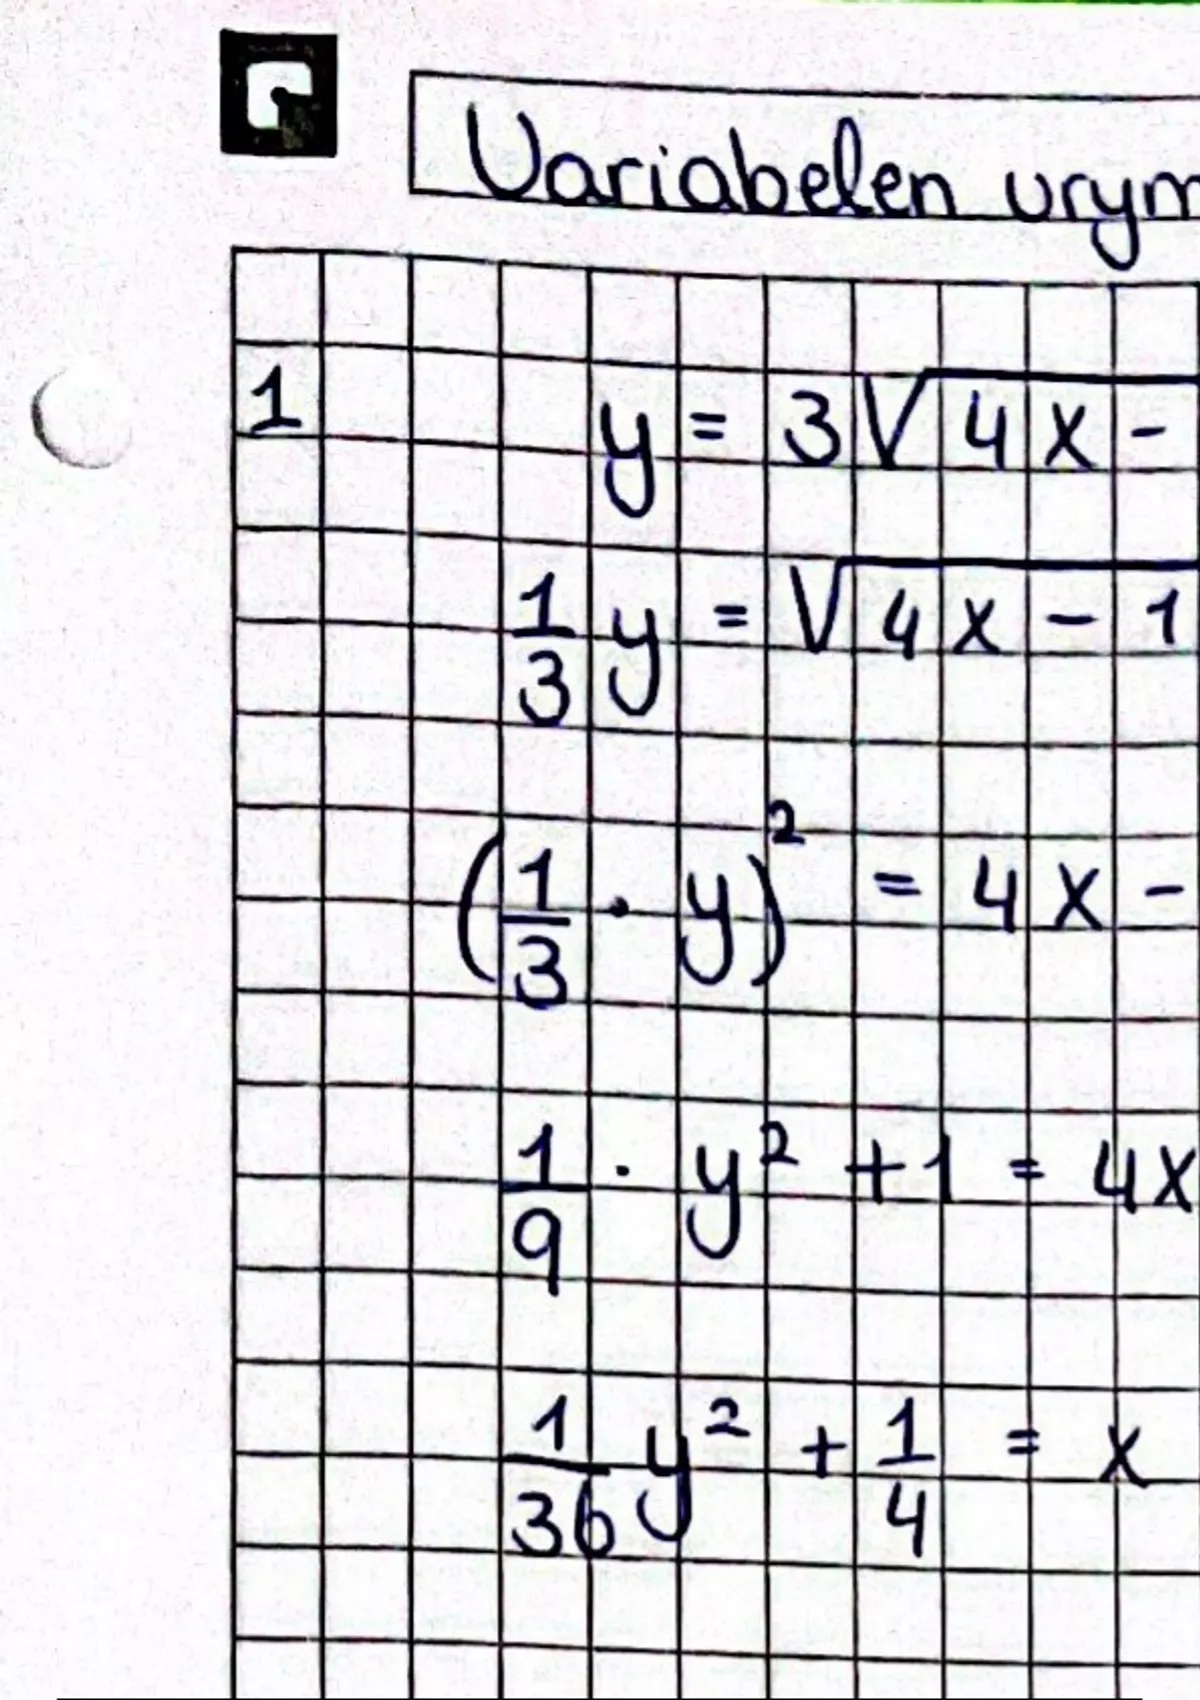 Variabelen vrym
1 y = 3√4x -
1/3 y = √4x - 1
(1/3 · y)² = 4x -
1/9 · y² + 1 = 4x
1/36 y² + 1/4 = x